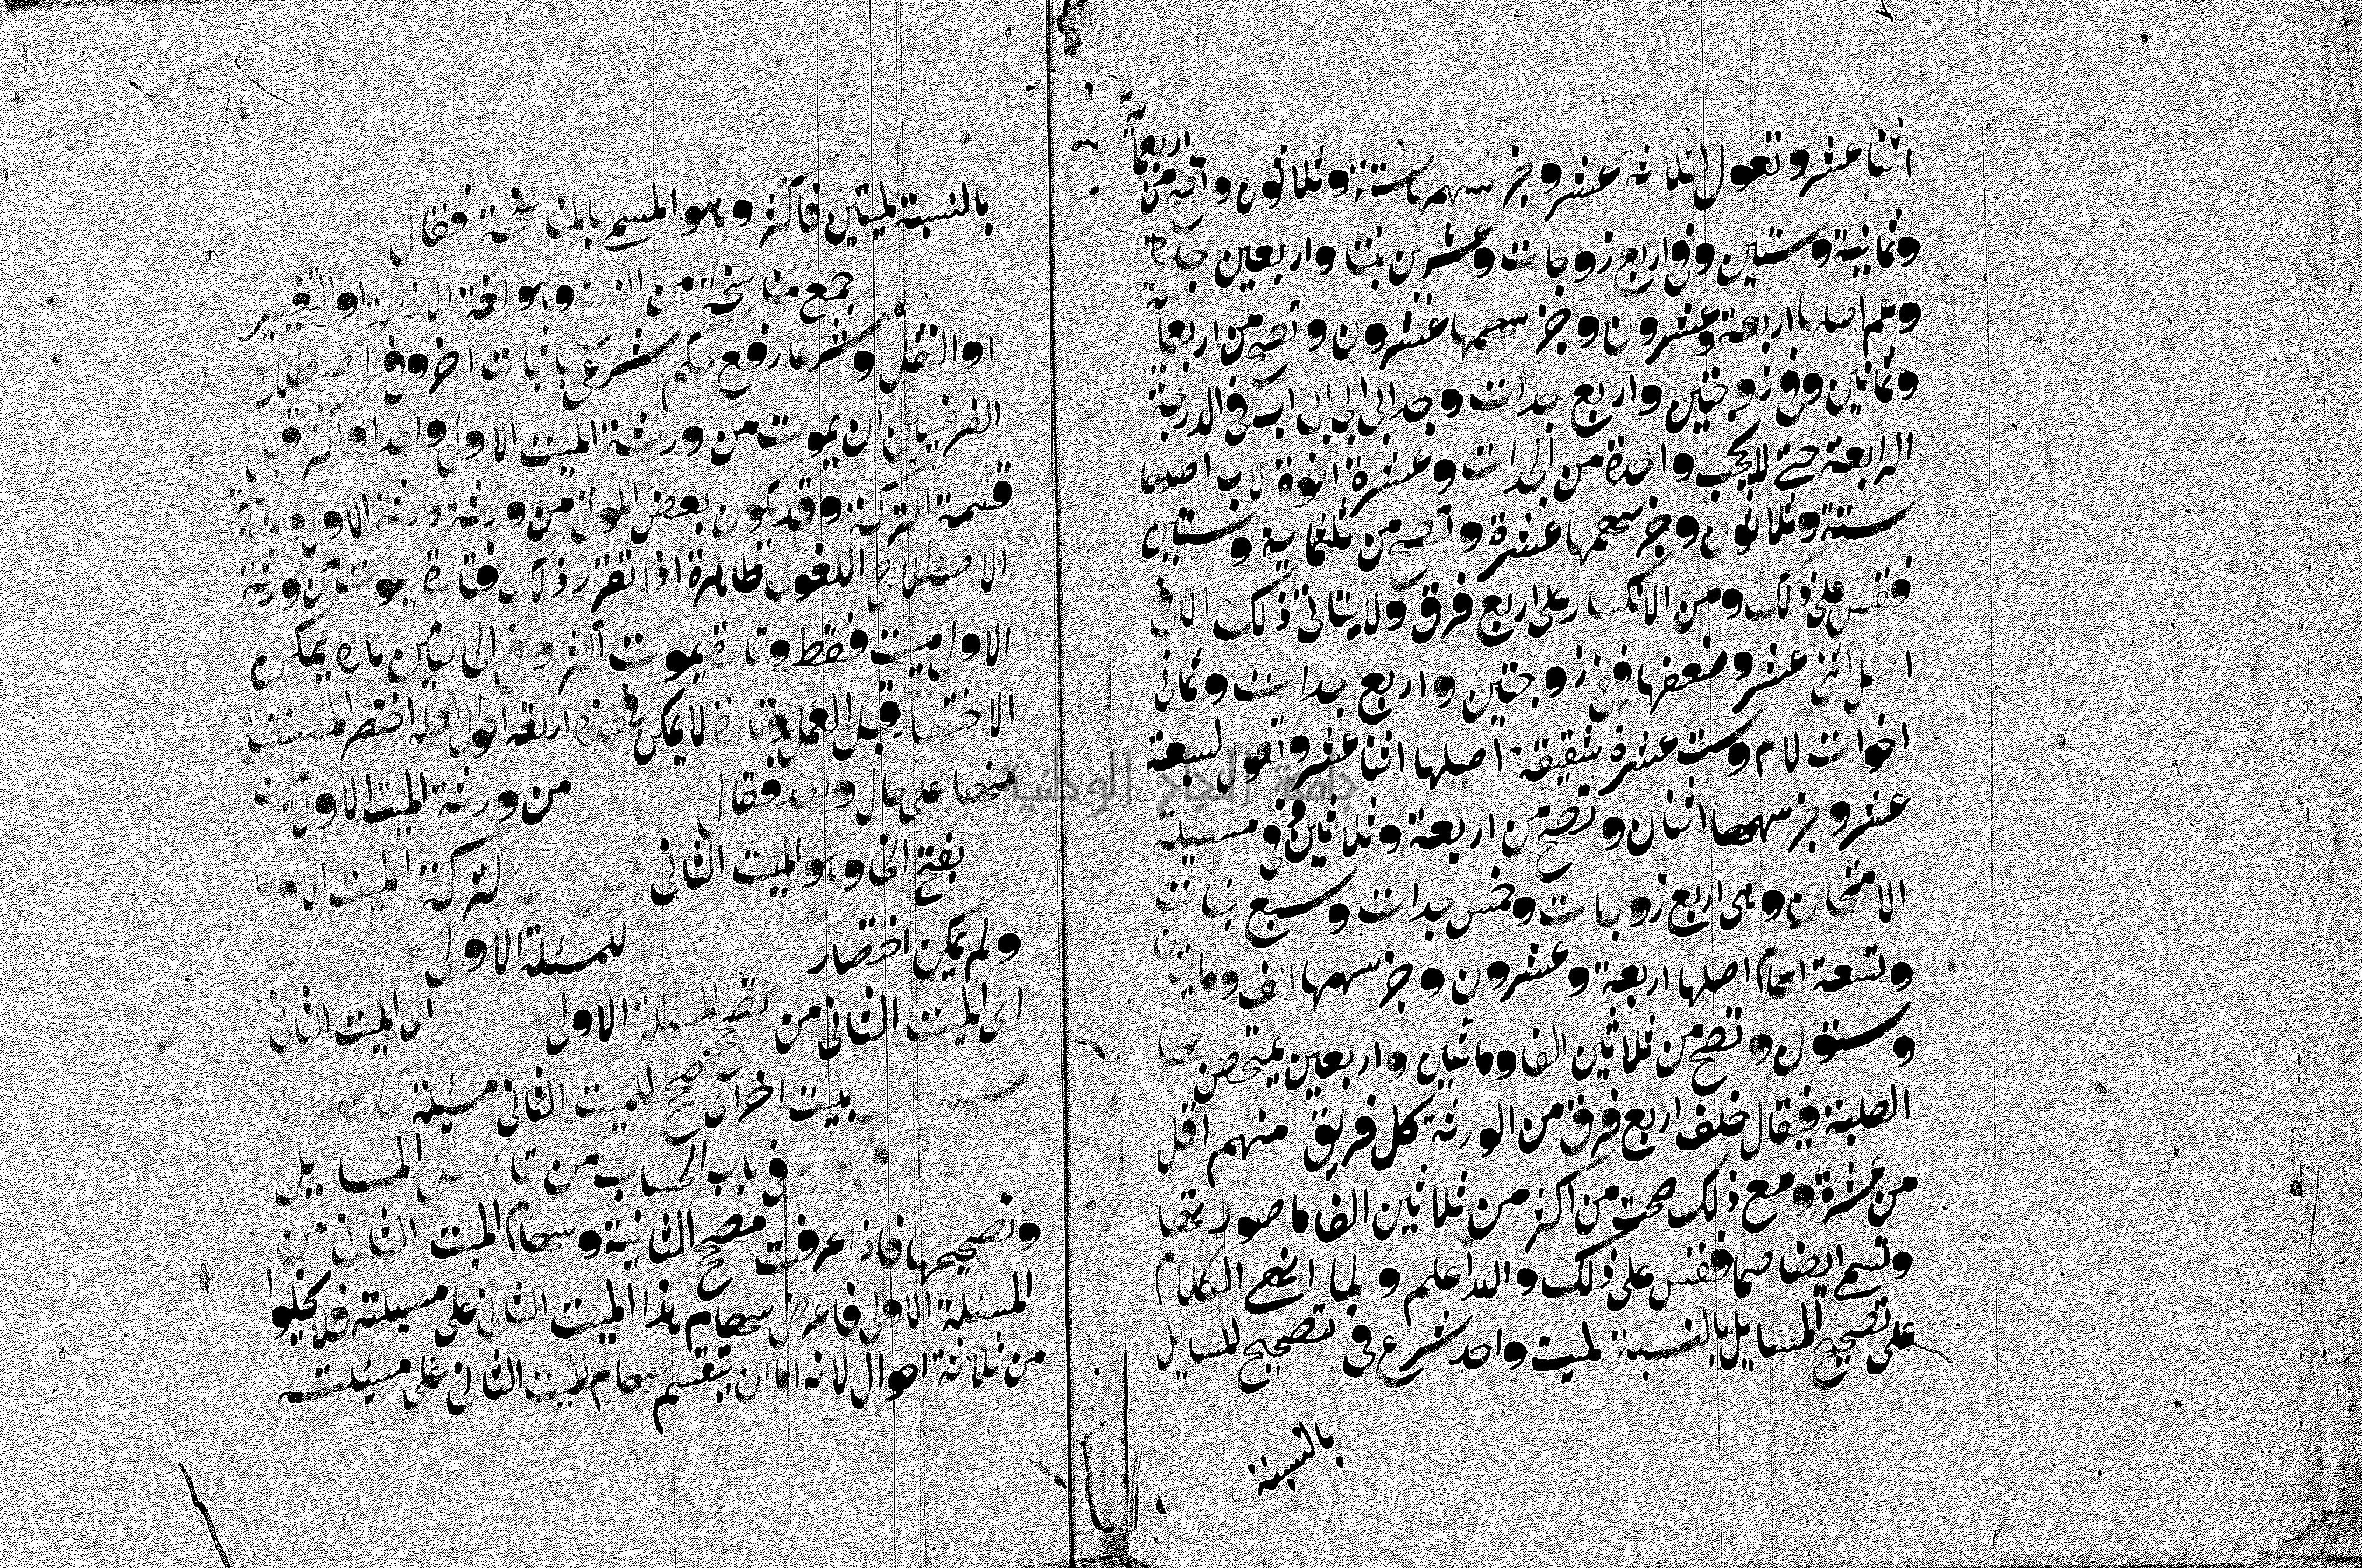 اثنا عشر وتعول لثلاثة عشر وجزء سهمها ستة وثلاثون وتصح من اربعماية
وثمانية وستين وفي اربع زوجات وعشرين بنتا واربعين جدة
وعم اصلها اربعة وعشرون وجزء سهمها عشرون وتصح من اربعماية
وثمانين وفي زوجتين واربع جدات وجد ابي ابي اب في الدرجة
الرابعة حتى لا يحجب واحدة من الجدات وعشرة اخوة لاب اصلها
ستة وثلاثون وجزء سهمها عشرة وتصح من ثلثماية وستين
فقس على ذلك ومن الانكسار على اربع فرق ولا يتاتى ذلك الا في
اصل اثنى عشر وضعفها ففي زوجتين واربع جدات وثماني
اخوات لام وست عشرة شقيقة اصلها اثنا عشر وتعول لسبعة
عشر وجزء سهمها اثنان وتصح من اربعة وثلاثين وفي مسيلة
الامتحان وهي اربع زوجات وخمس جدات وسبع بنات
وتسعة اعمام اصلها اربعة وعشرون وجزء سهمها الف ومايتان
وستون وتصح من ثلاثين الفا ومائتين واربعين يمتحن بها
الطلبة فيقال خلف اربع فرق من الورثة كل فريق منهم اقل
من عشرة ومع ذلك صحت من اكثر من ثلاثين الفا ما صورتها
وتسمى ايضا صما فقس على ذلك والله اعلم ولما انهى الكلام
على تصحيح المسايل بالنسبة لميت واحد شرع في تصحيح المسايل
بالنسبة
بالنسبة لميتين فاكثر وهو المسمى بالمناسخة فقال
جمع مناسخة من النسخ وهو لغة الازالة او التغيير
او النقل وشرعا رفع حكم شرعي باثبات اخر وفي اصطلاح
الفرضيين ان يموت من ورثة الميت الاول واحد او اكثر قبل
قسمة التركة وقد يكون بعض الموتى من ورثة ورثة الاول ومناسبة
الاصطلاح اللغوي ظاهرة اذا تقرر ذلك فتارة يموت من ورثة
الاول ميت فقط وتارة يموت اكثر وفي الحالتين تارة يمكن
الاختصار قبل العمل وتارة لا يمكن فهذه اربعة احوال اختصر المصنف
منها على حال واحد فقال من ورثة الميت الاول
بفتح الخا وهو الميت الثاني لتركة الميت الاول
ولم يمكن اختصار للمسئلة الاولى
اى الميت الثاني من تصحيح المسئلة الاولى اى الميت الثاني
ببيت اخر اى صحح للميت الثاني مسئلة
في باب الحساب من تاصيل المسايل
وتصحيحها فاذا عرفت مصحح الثانية وسهام الميت الثاني من
المسئلة الاولى فاعرض سهام هذا الميت الثاني على مسيلته فلا يخلوا
من ثلاثة احوال لانه اما ان تنقسم سهام الميت الثاني على مسئلته
جامعة النجاح الوطنية